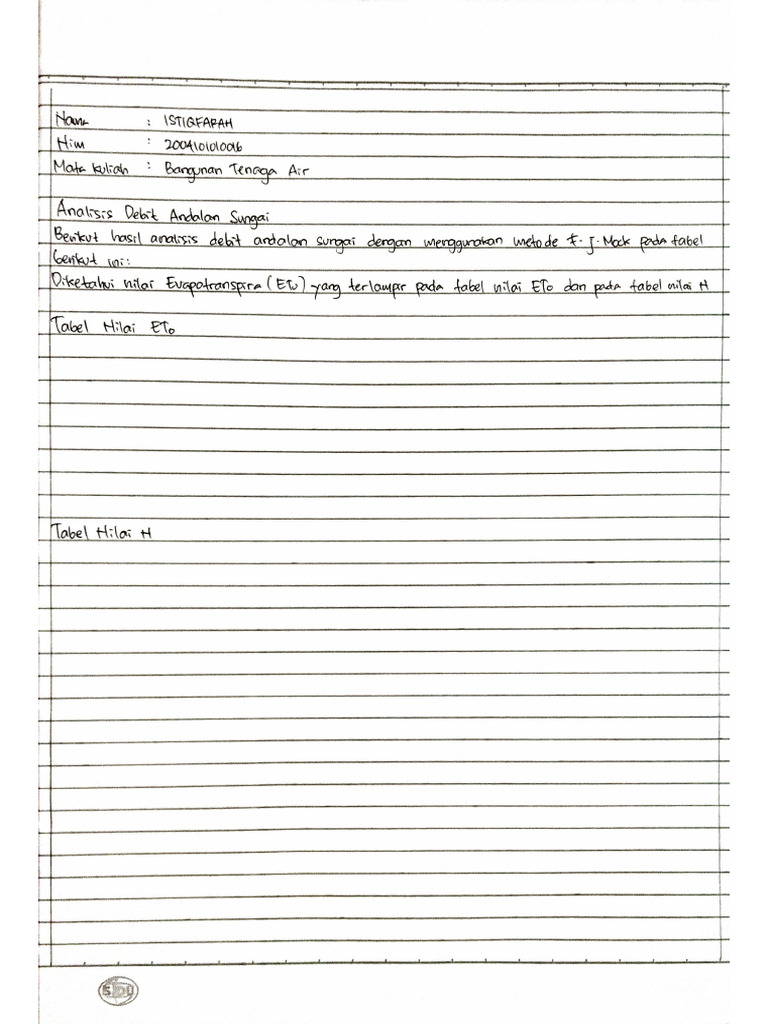 Nama : ISTIQFARAH
Nim : 200410101016
Mata kuliah : Bangunan Tenaga Air
Analisis Debit Andalan Sungai
Berikut hasil analisis debit andalan sungai dengan menggunakan metode F. J. Mock pada tabel
berikut ini:
Diketahui nilai Evapotranspira (ETo) yang terlampir pada tabel nilai ETo dan pada tabel nilai N
Tabel Nilai ETo
Tabel Nilai N
SIDU